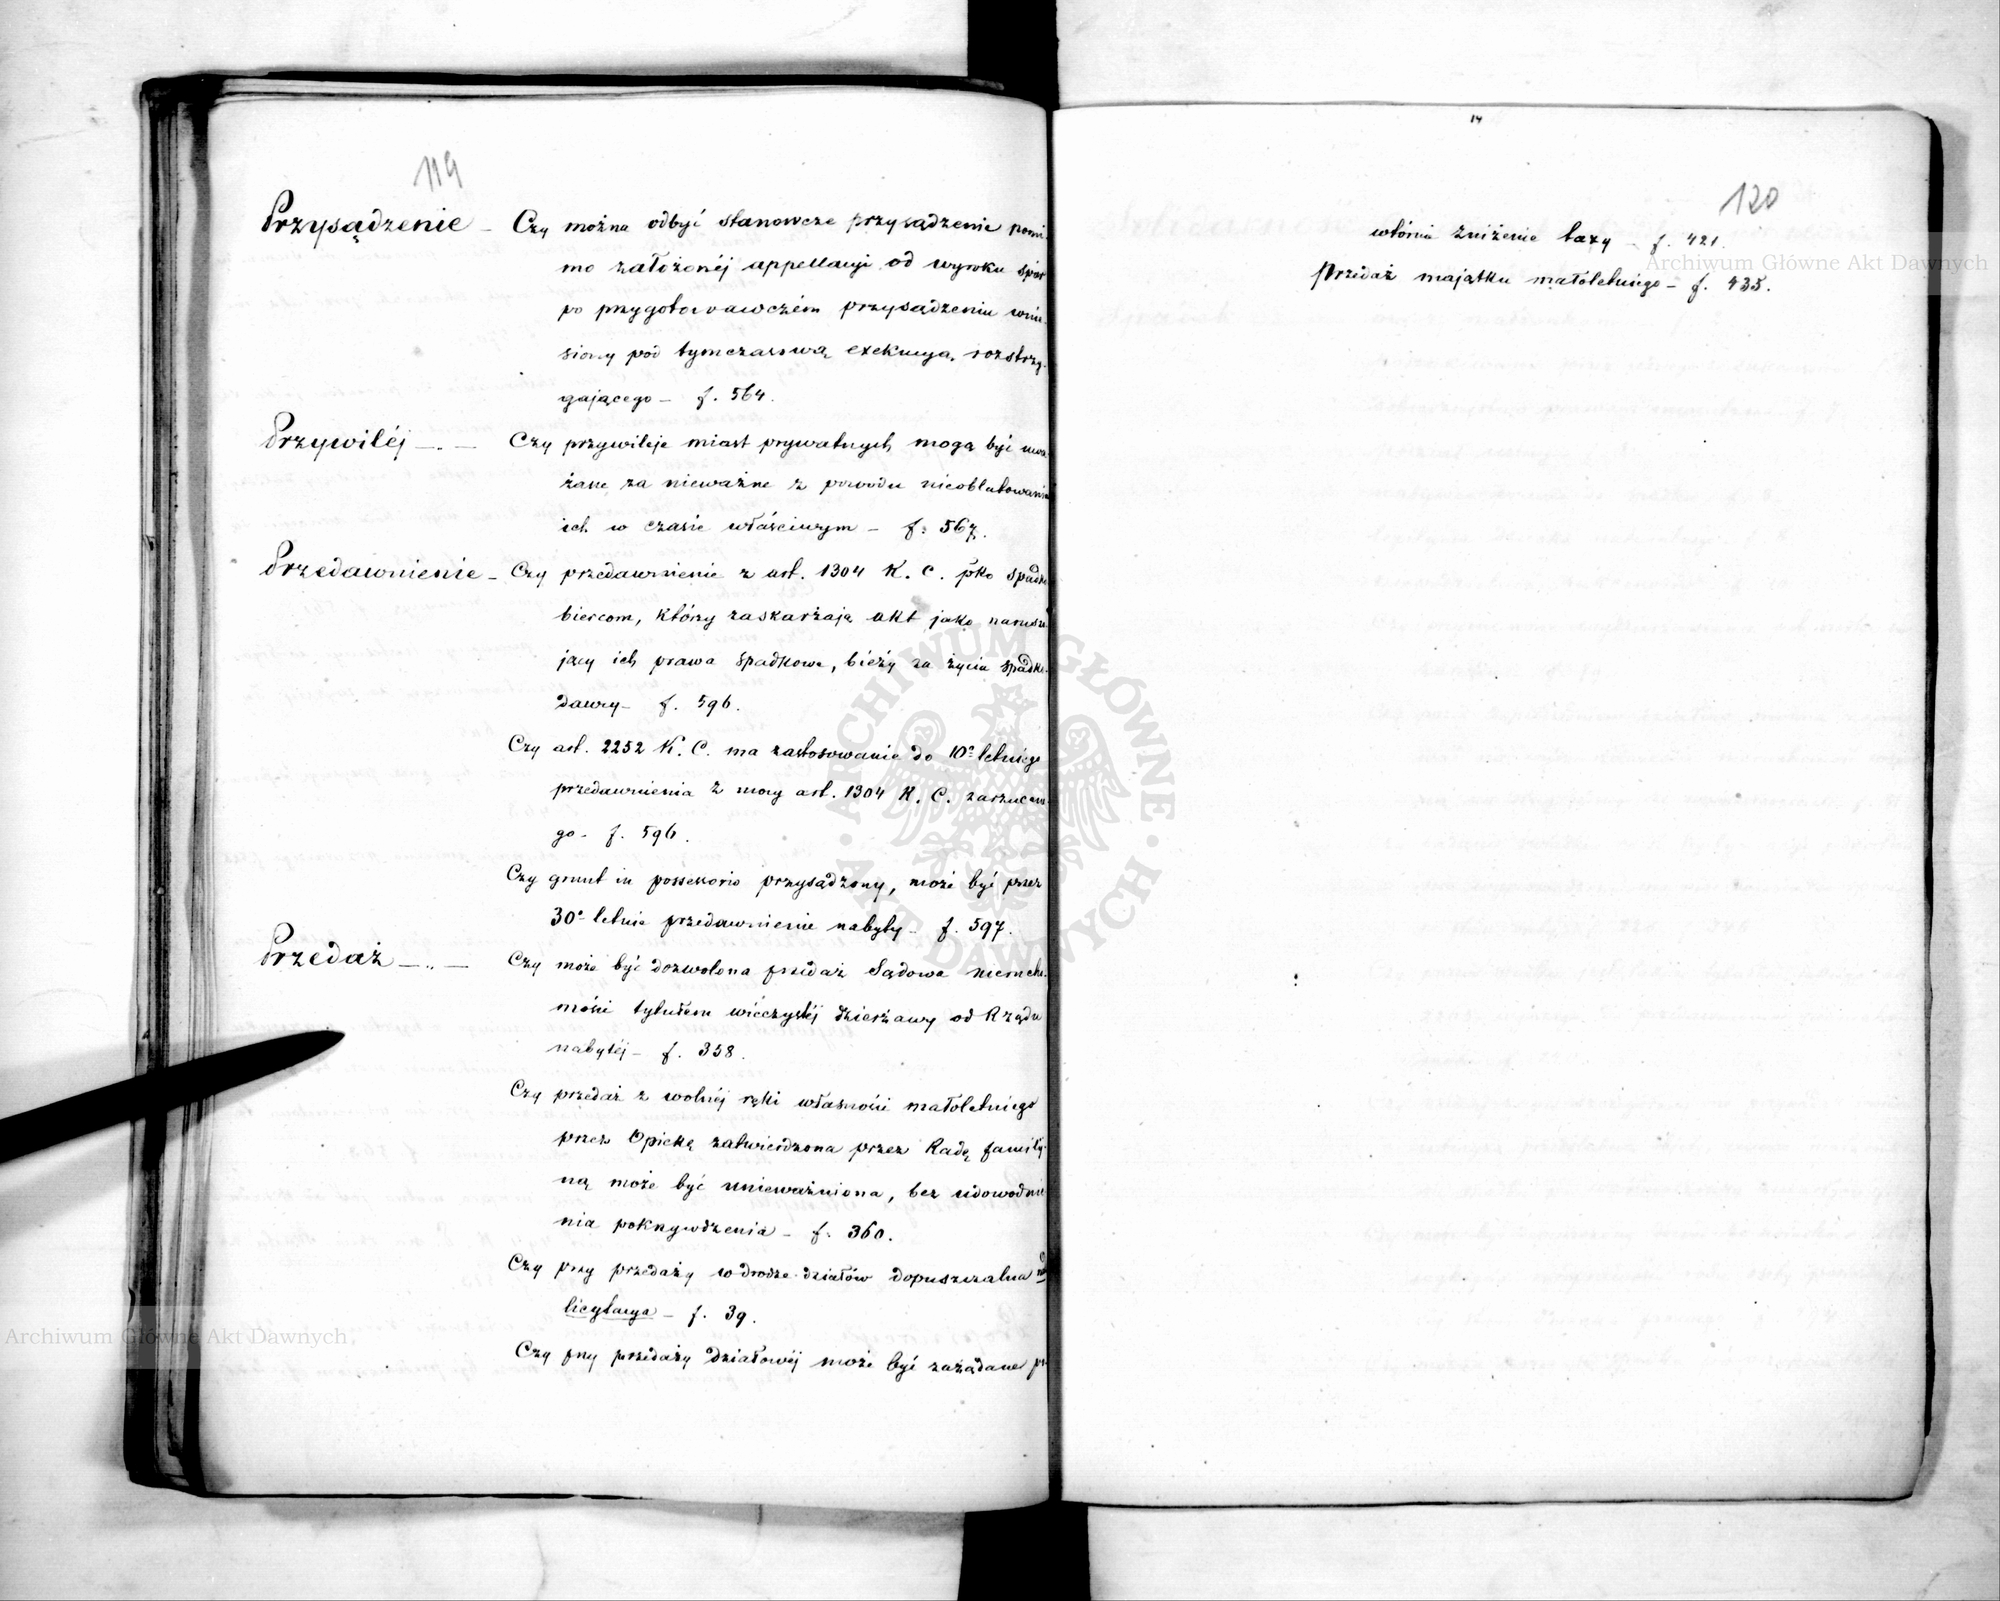 119
Przysądzenie – Czy można odbyć stanowcze przysądzenie pomi-
mo założonéj appellacyi od wyroku spór
po przygotowawczém przysądzeniu wnie-
siony pod tymczasową exekucyą, rozstrzy-
gającego – f. 564.
Przywiléj – . – Czy przywileje miast prywatnych mogą być uwa-
żane za nieważne z powodu nieoblatowania
ich w czasie właściwym – f. 567.
Przedawnienie – Czy przedawnienie z art. 1304 K. C. pko spadko-
biercom, którzy zaskarżają akt jako narusza-
jący ich prawa spadkowe, bieży za życia spadko-
dawcy – f. 596.
Czy art. 2252 K. C. ma zastosowanie do 10o letniego
przedawnienia z mocy art. 1304 K. C. zarzucane-
go – f. 596.
Czy grunt in possessorio przysądzony, może być przez
30o letnie przedawnienie nabyty – f. 597.
Przedaż – .. – Czy może być dozwolona przedaż Sądowa nierucho-
mości tytułem wieczystéj dzierżawy od Rządu
nabytéj – f. 358.
Czy przedaż z wolnéj ręki własności małoletniego
przez Opiekę zatwierdzona przez Radę famiły-
ną może być unieważniona, bez udowodnie-
nia pokrzywdzenia – f. 360.
Czy przy przedaży w drodze działów dopuszczalna
licytacya – f. 39.
Czy przy przedaży działowéj może być zażądane
14
120
wtórnie zniżenie taxy – f. 421.
Przedaż majątku małoletniego – f. 435.
ARCHIWUM GŁÓWNE AKT DAWNYCH
Archiwum Główne Akt Dawnych
Archiwum Główne Akt Dawnych